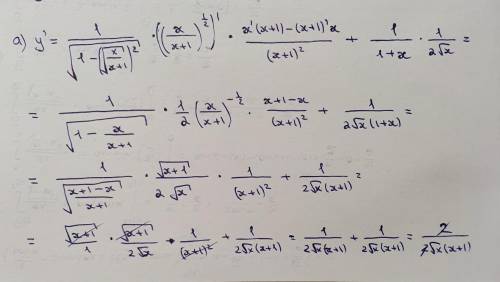 a) y' = 1/√(1-(√(x/(x+1)))²) · ((x/(x+1))^(1/2))' · (x'(x+1)-(x+1)'x)/(x+1)² + 1/(1+x) · 1/(2√x) =
= 1/√(1 - x/(x+1)) · 1/2 (x/(x+1))^(-1/2) · (x+1-x)/(x+1)² + 1/(2√x(1+x)) =
= 1/√((x+1-x)/(x+1)) · √(x+1)/(2√x) · 1/(x+1)² + 1/(2√x(x+1)) =
= √(x+1)/1 · √(x+1)/(2√x) · 1/(x+1)² + 1/(2√x(x+1)) = 1/(2√x(x+1)) + 1/(2√x(x+1)) = 2/(2√x(x+1))